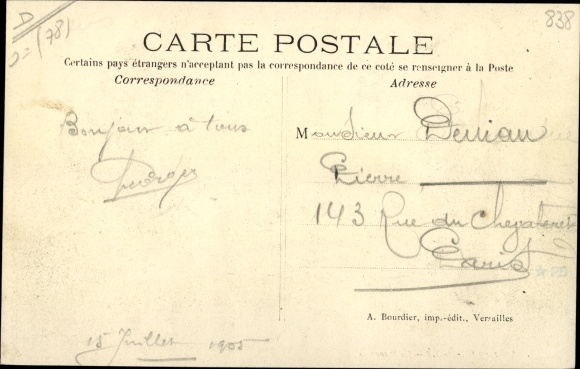 D
(78)
838
CARTE POSTALE
Certains pays étrangers n'acceptant pas la correspondance de ce coté se renseigner à la Poste
Correspondance
Adresse
Bonjour à tous
Georges
Monsieur
Pierre
143 Rue du
Paris
A. Bourdier, imp.-édit., Versailles
15 Juillet 1905